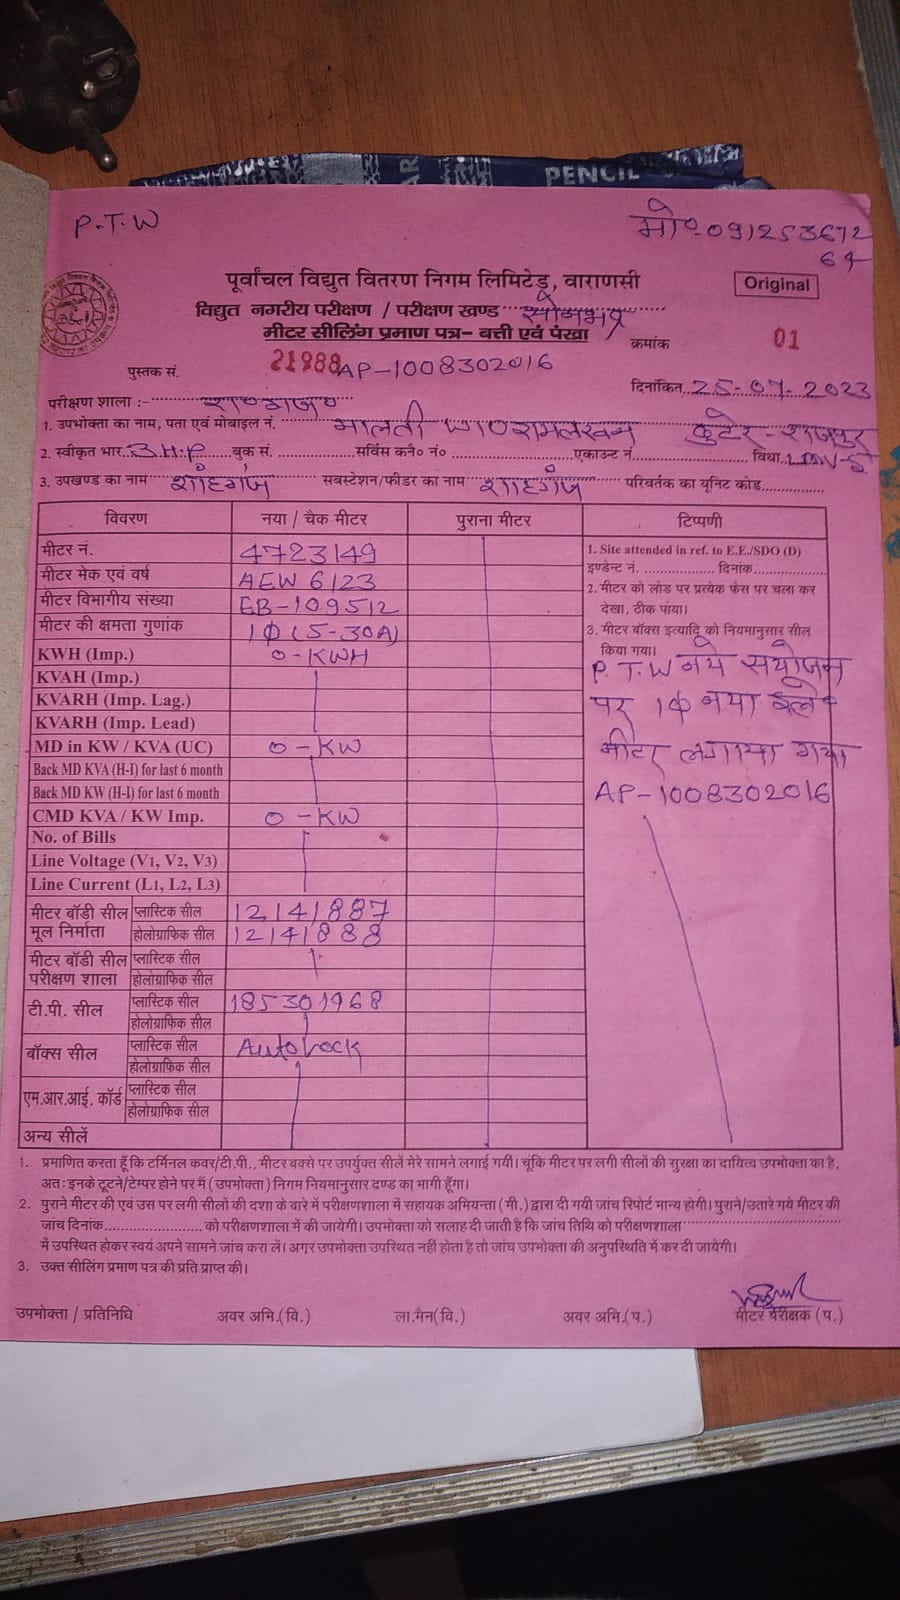 PENCIL
P.T.W
मो०.091253672
64
पूर्वांचल विद्युत वितरण निगम लिमिटेड, वाराणसी
Original
विद्युत नगरीय परीक्षण / परीक्षण खण्ड सोनभद्र
मीटर सीलिंग प्रमाण पत्र– बत्ती एवं पंखा
क्रमांक 01
पुस्तक सं. 21988 AP-1008302016
दिनांकित 25-07-2023
परीक्षण शाला :-
1. उपभोक्ता का नाम, पता एवं मोबाइल नं. मालती W/O रामलखन
2. स्वीकृत भार 3H.P बुक सं. सर्विस कने० नं० एकाउन्ट नं. विधा
3. उपखण्ड का नाम शाहगंज सबस्टेशन/फीडर का नाम शाहगंज परिवर्तक का यूनिट कोड
विवरण नया / चैक मीटर पुराना मीटर टिप्पणी
मीटर नं. 4723149
मीटर मेक एवं वर्ष AEW 6/23
मीटर विभागीय संख्या EB-109512
मीटर की क्षमता गुणांक 1Φ (5-30A)
KWH (Imp.) 0-KWH
KVAH (Imp.)
KVARH (Imp. Lag.)
KVARH (Imp. Lead)
MD in KW / KVA (UC) 0-KW
Back MD KVA (H-I) for last 6 month
Back MD KW (H-I) for last 6 month
CMD KVA / KW Imp. 0-KW
No. of Bills
Line Voltage (V1, V2, V3)
Line Current (L1, L2, L3)
मीटर बॉडी सील मूल निर्माता प्लास्टिक सील 12141887
होलोग्राफिक सील 12141888
मीटर बॉडी सील परीक्षण शाला प्लास्टिक सील
होलोग्राफिक सील
टी.पी. सील प्लास्टिक सील 185301968
होलोग्राफिक सील
बॉक्स सील प्लास्टिक सील Autolock
होलोग्राफिक सील
एम.आर.आई. कॉर्ड प्लास्टिक सील
होलोग्राफिक सील
अन्य सीलें
1. Site attended in ref. to E.E./SDO (D)
इण्डेन्ट नं. दिनांक
2. मीटर को लोड पर प्रत्येक फेस पर चला कर
देखा, ठीक पाया।
3. मीटर बॉक्स इत्यादि को नियमानुसार सील
किया गया।
P.T.W नये संयोजन
पर 1Φ नया इले०
मीटर लगाया गया
AP-1008302016
1. प्रमाणित करता हूँ कि टर्मिनल कवर/टी.पी., मीटर बक्से पर उपर्युक्त सीलें मेरे सामने लगाई गयी। चूंकि मीटर पर लगी सीलों की सुरक्षा का दायित्व उपभोक्ता का है,
अतः इनके टूटने/टेम्पर होने पर मैं (उपभोक्ता) निगम नियमानुसार दण्ड का भागी हूँगा।
2. पुराने मीटर की एवं उस पर लगी सीलों की दशा के बारे में परीक्षणशाला में सहायक अभियन्ता (मी.) द्वारा दी गयी जांच रिपोर्ट मान्य होगी। पुराने/उतारे गये मीटर की
जांच दिनांक को परीक्षणशाला में की जायेगी। उपभोक्ता को सलाह दी जाती है कि जांच तिथि को परीक्षणशाला
में उपस्थित होकर स्वयं अपने सामने जांच करा लें। अगर उपभोक्ता उपस्थित नहीं होता है तो जांच उपभोक्ता की अनुपस्थिति में कर दी जायेगी।
3. उक्त सीलिंग प्रमाण पत्र की प्रति प्राप्त की।
उपभोक्ता / प्रतिनिधि अवर अभि.(वि.) ला.मैन(वि.) अवर अभि.(प.) मीटर परीक्षक (प.)